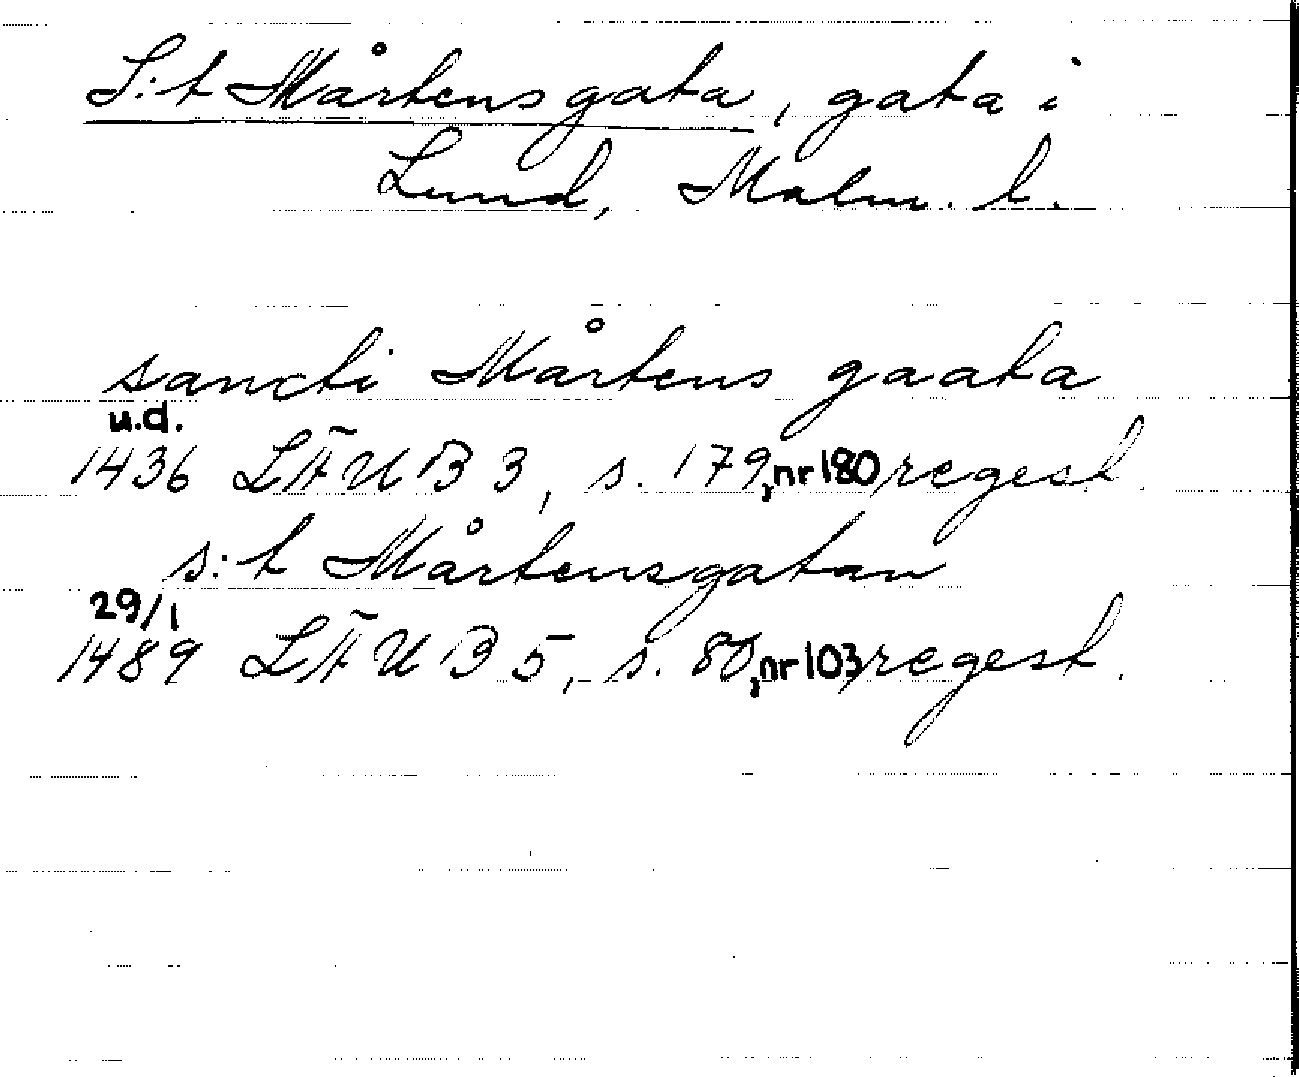 S:t Mårtensgata, gata i
Lund, Malm. l.
sancti Mårtens gaata
u.d.
1436 LÄUB 3, s. 179, nr 180 regest.
s:t Mårtensgatan
29/1
1489 LÄUB 5, s. 80, nr 103 regest.